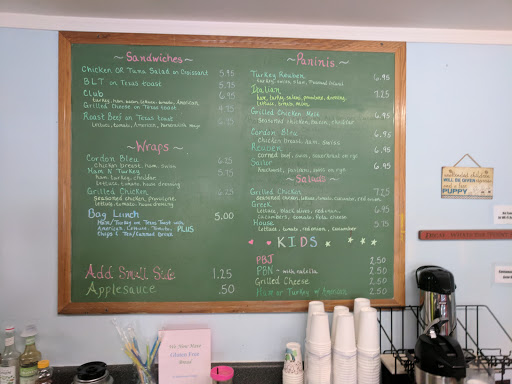 ~ Sandwiches ~
Chicken OR Tuna Salad on Croissant 5.95
BLT on Texas toast 5.75
Club 6.95
turkey, ham, bacon, lettuce, tomato, American
Grilled Cheese on Texas toast 4.95
Roast Beef on Texas toast 6.95
lettuce, tomato, American, horseradish mayo
~ Wraps ~
Cordon Bleu 6.25
chicken breast, ham, swiss
Ham N Turkey 5.75
ham, turkey, cheddar
lettuce, tomato, house dressing
Grilled Chicken 6.25
Seasoned chicken, provolone,
lettuce, tomato, house dressing
Bag Lunch 5.00
Ham/Turkey on Texas Toast with
American, Lettuce, Tomato, PLUS
Chips & Tea/Fountain Drink
Add Small Side 1.25
Applesauce .50
~ Paninis ~
Turkey Reuben 6.95
turkey, swiss, slaw, Thousand Island
Italian 7.25
ham, turkey, salami, provolone, dressing,
lettuce, onion
Grilled Chicken Melt 6.95
Seasoned chicken, bacon, cheddar
Cordon Bleu 6.95
Chicken breast, ham, swiss
Reuben 6.95
corned beef, swiss, sauerkraut on rye
Sailor 6.95
knockwurst, pastrami, swiss on rye
~ Salads ~
Grilled Chicken 7.25
Seasoned chicken, lettuce, tomato, red onion, cucumber
Greek 6.95
Lettuce, black olives, red onion,
Cucumbers, tomato, Feta cheese
House 5.75
Lettuce, tomato, red onion, cucumber
KIDS
PBJ 2.50
PBN ~ with nutella 2.50
Grilled Cheese 2.50
Ham or Turkey w/ American 2.50
unattended children
WILL BE GIVEN
and a free
PUPPY
We Now Have
Gluten Free
Bread